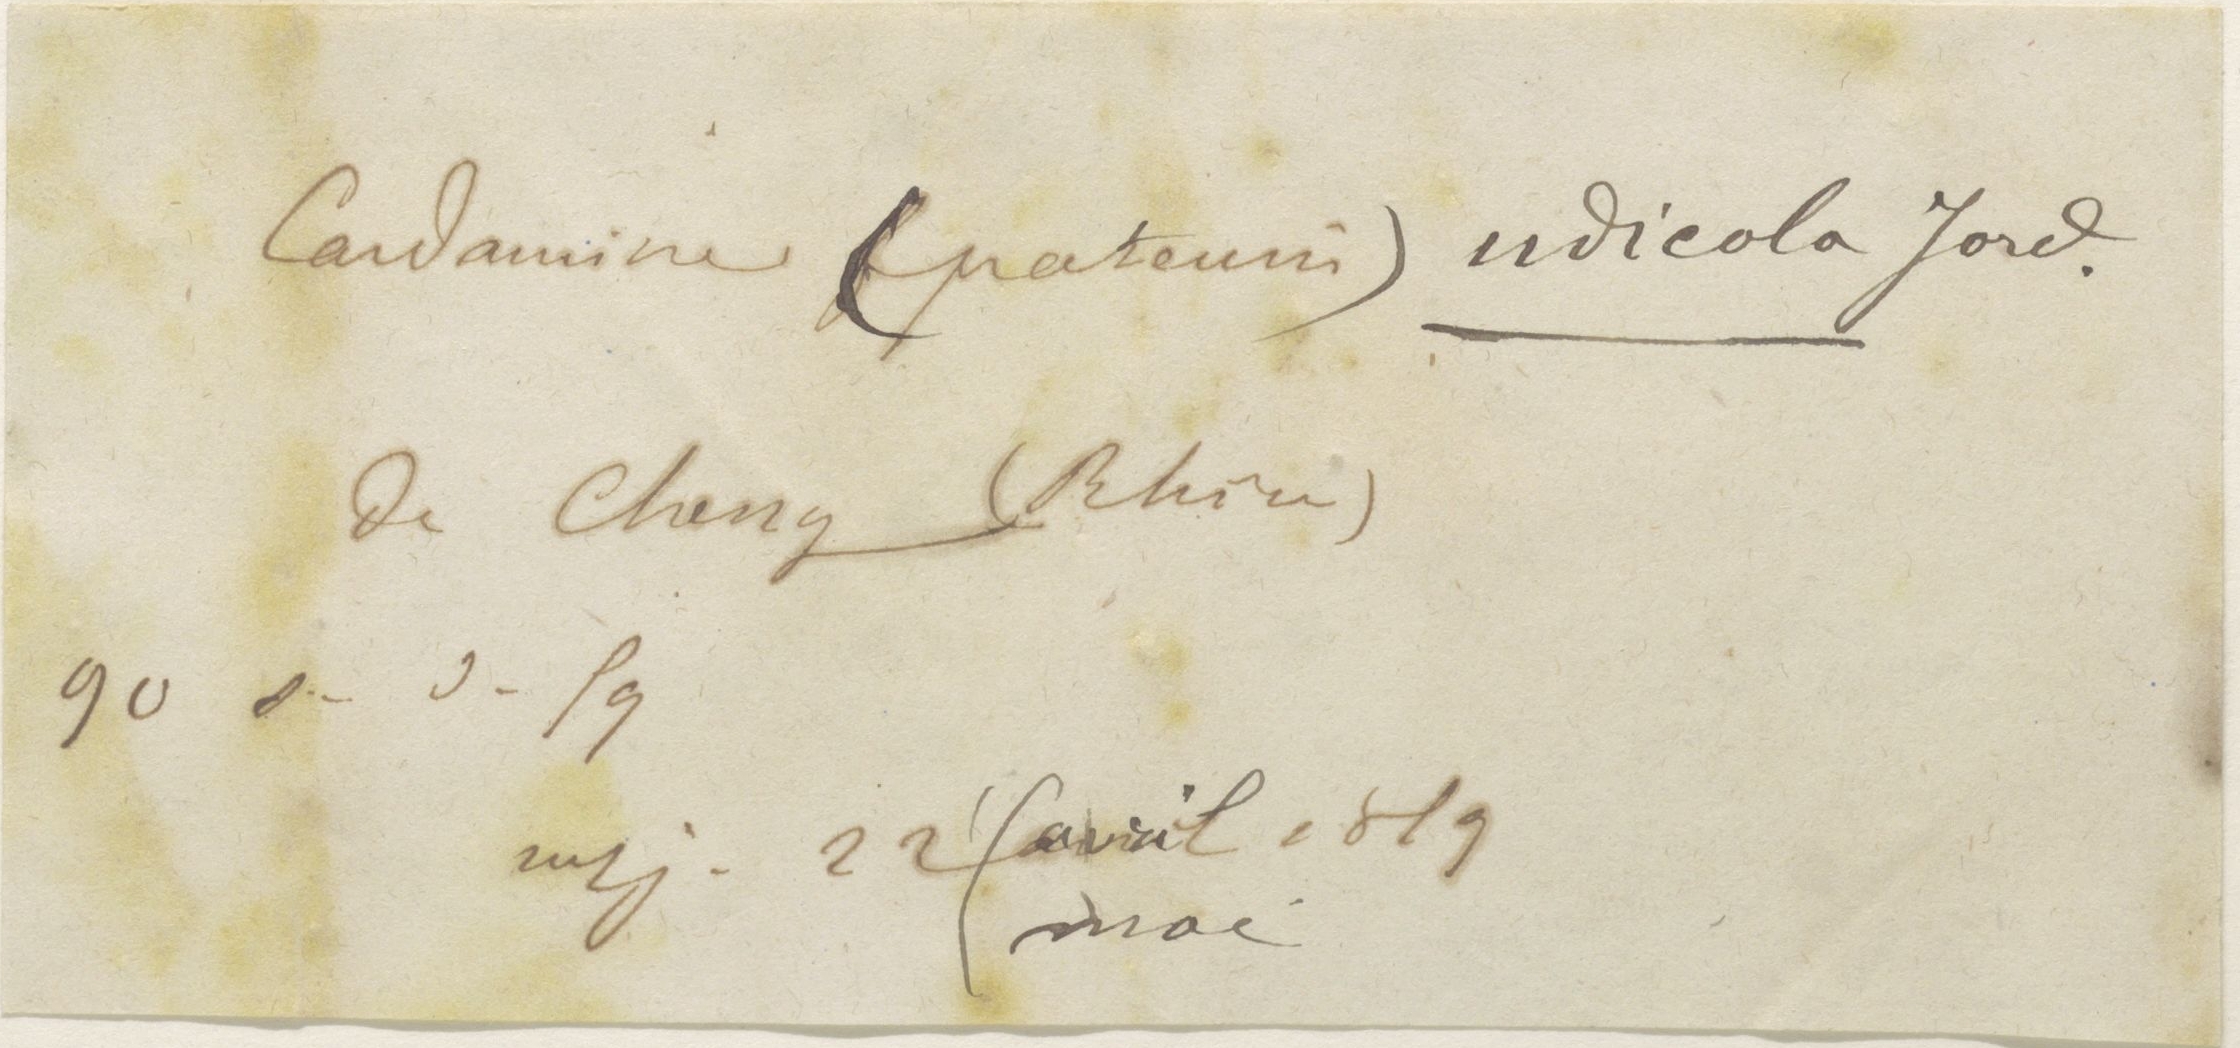 Cardamine (pratensis) udicola Jord.
de Chessy (Rhône)
90 s. d. 59
22 avril 1859
mai